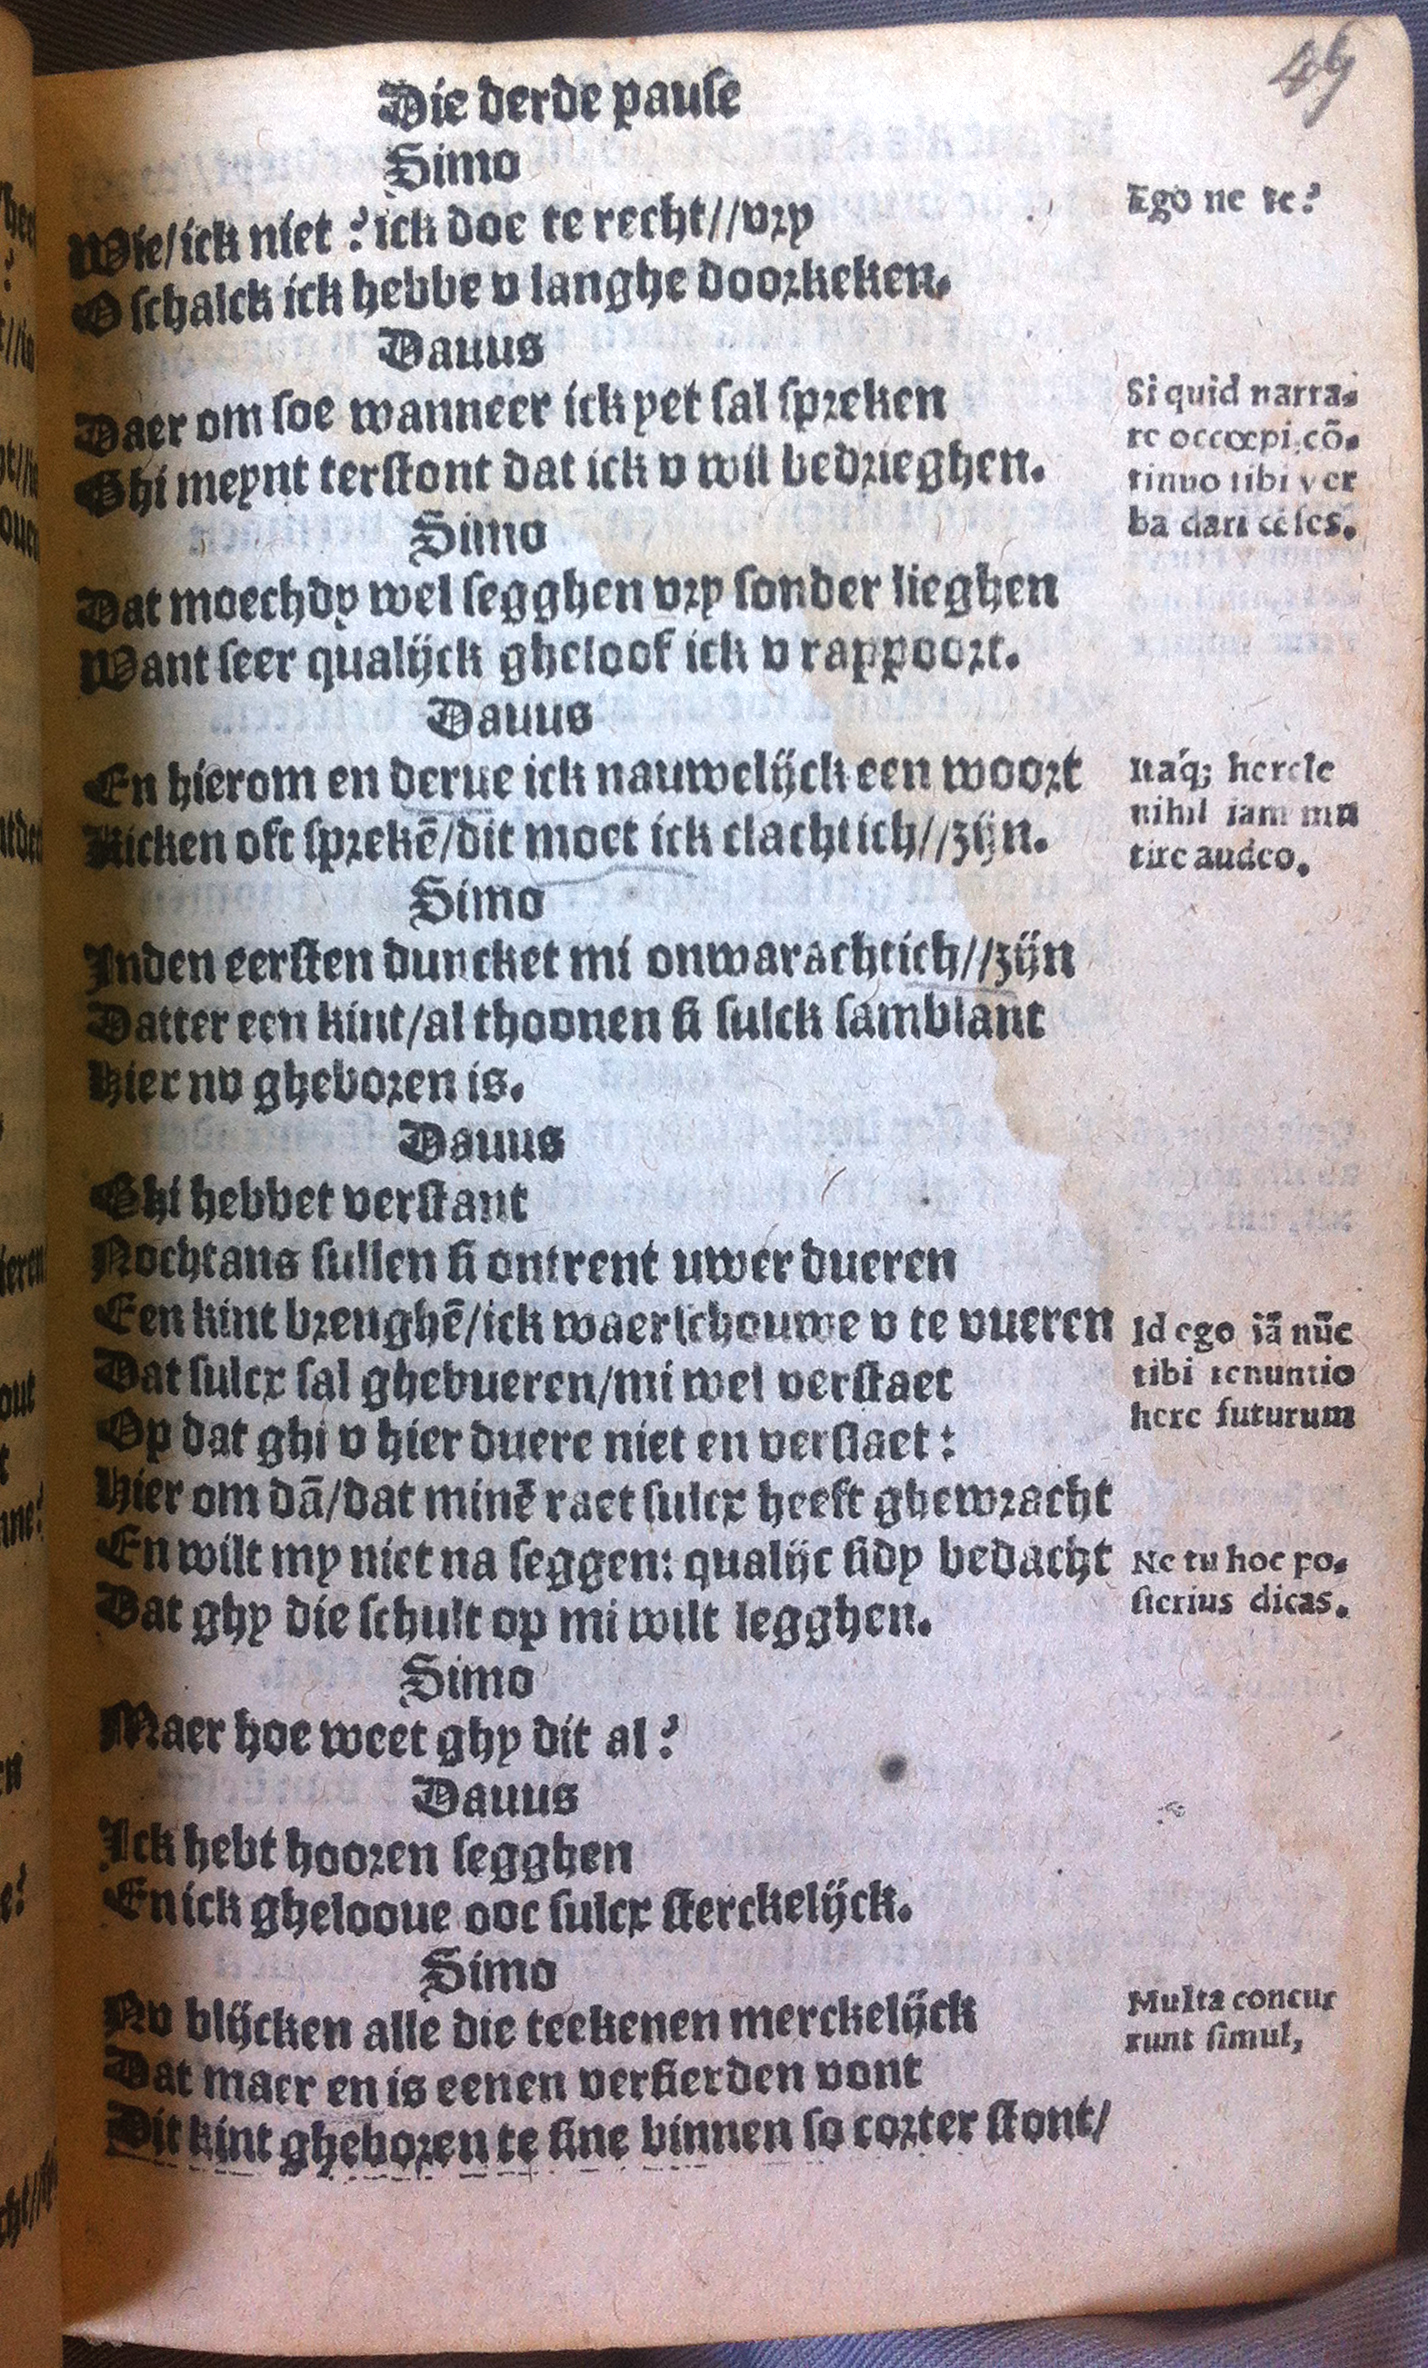 49
Die derde pause
Simo
Wie/ick niet? ick doe te recht//vry
Ego ne te?
O schalck ick hebbe v langhe doorkeken.
Dauus
Daer om soe wanneer ick yet sal spreken
Ghi meynt terstont dat ick v wil bedrieghen.
Si quid narra-
re occœpi, cō-
tinuo tibi ver
ba dari cēses.
Simo
Dat moechdy wel segghen vry sonder lieghen
Want seer qualijck gheloof ick v rappoort.
Dauus
En hierom en derue ick nauwelijck een woort
Kicken oft sprekē/dit moet ick clachtich//zijn.
Itaq; hercle
nihil iam mu
tire audeo.
Simo
Inden eersten duncket mi onwarachtich//zijn
Datter een kint/al thoonen si sulck samblant
Hier nv gheboren is.
Dauus
Ghi hebbet verstant
Nochtans sullen si ontrent uwer dueren
Een kint brenghē/ick waerschouwe v te vueren
Dat sulcx sal ghebueren/mi wel verstaet
Op dat ghi v hier duere niet en verslaet:
Id ego iā nūc
tibi renuntio
here futurum
Hier om dā/dat minē raet sulcx heeft ghewracht
En wilt my niet na seggen: qualijc sidy bedacht
Dat ghy die schult op mi wilt legghen.
Ne tu hoc po-
sterius dicas.
Simo
Maer hoe weet ghy dit al?
Dauus
Ick hebt hooren segghen
En ick ghelooue ooc sulcx sterckelijck.
Simo
Nv blijcken alle die teekenen merckelijck
Dat maer en is eenen versierden vont
Dit kint gheboren te sine binnen so corter stont/
Multa concur
runt simul,